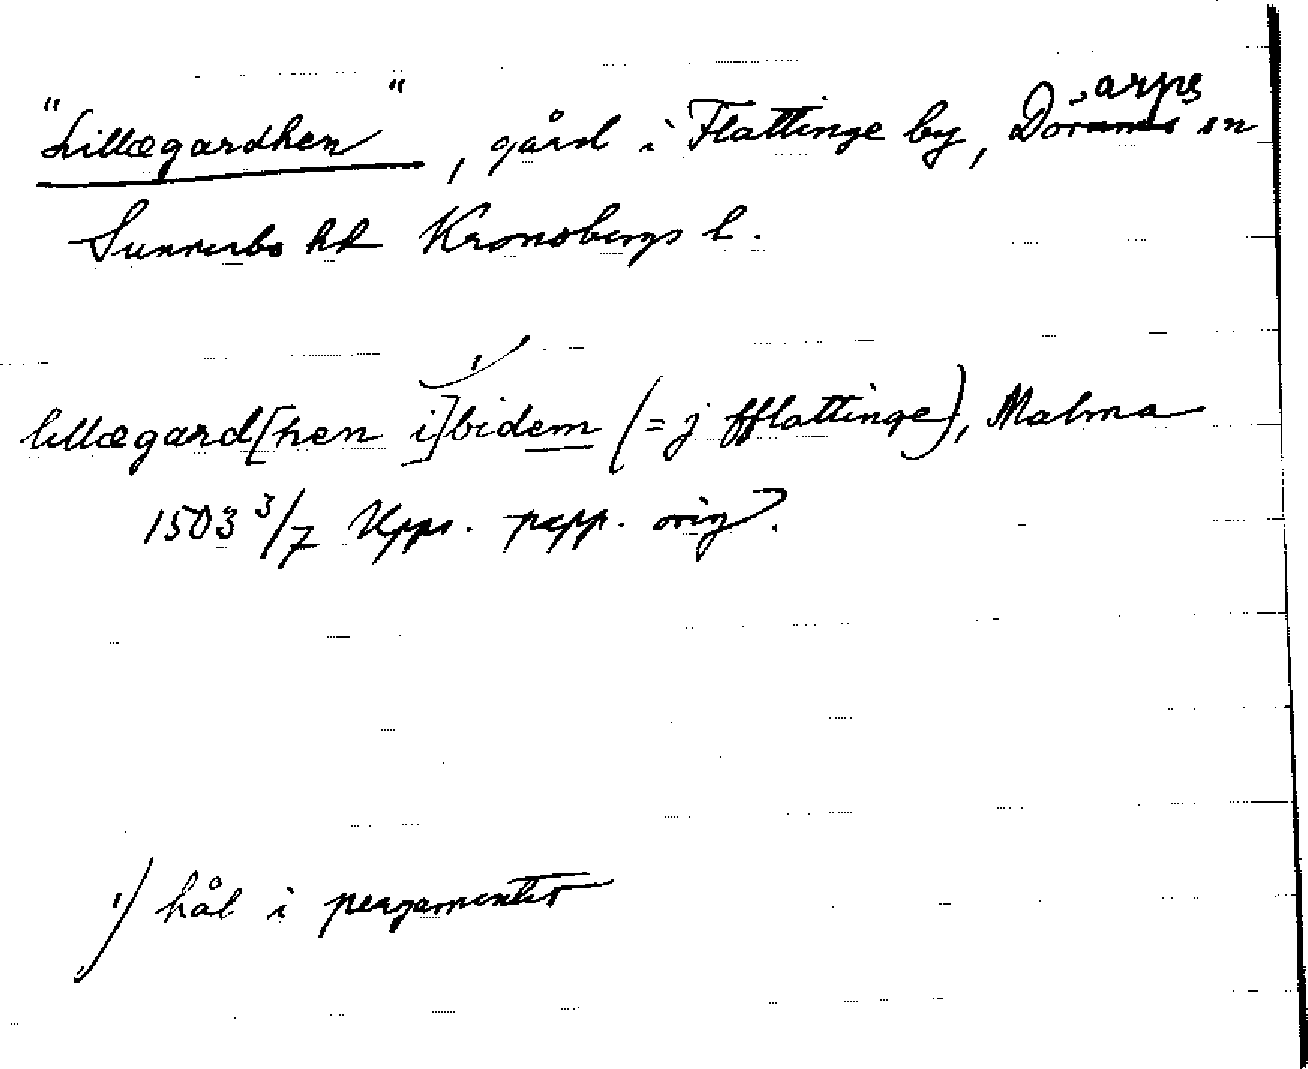 "Lillægardhen", gård i Flattinge by, Dörarps sn
Sunnerbo hd Kronobergs l.
lillægard[hen i]¹⁾bidem (= j fflattinge), Malma
1503 3/7 Upps. papp. orig.
1) hål i pergamentet